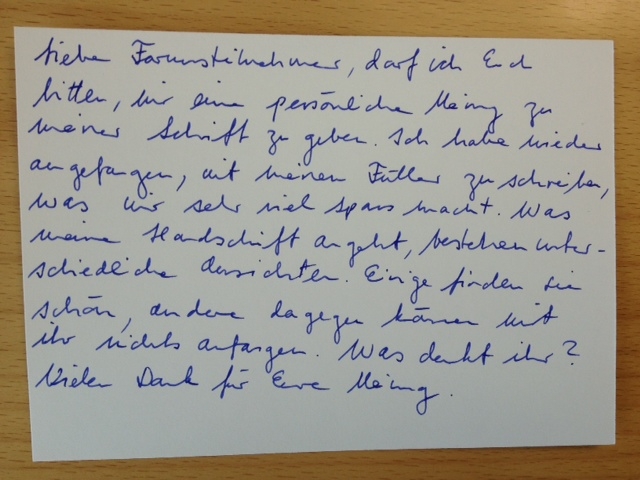 Liebe Forumsteilnehmer, darf ich Euch
bitten, mir eine persönliche Meinung zu
meiner Schrift zu geben. Ich habe wieder
angefangen, mit meinen Füller zu schreiben,
was mir sehr viel Spass macht. Was
meine Handschrift angeht, bestehen unter-
schiedliche Ansichten. Einige finden sie
schön, andere dagegen können mit
ihr nichts anfangen. Was denkt ihr?
Vielen Dank für Eure Meinung.